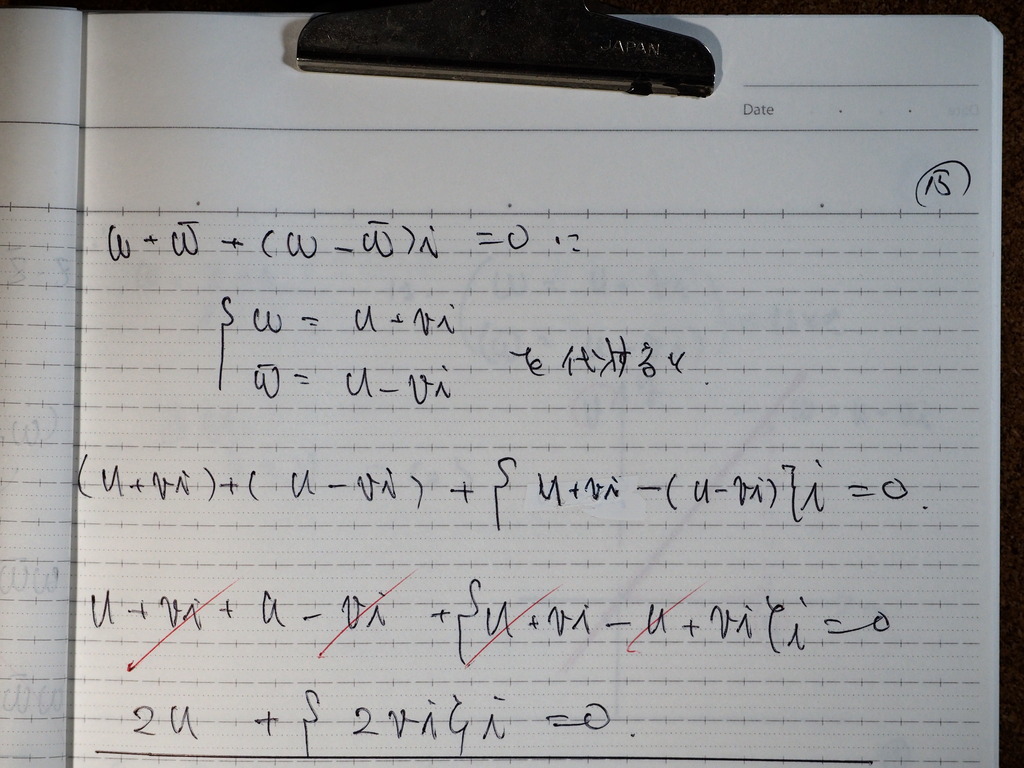 JAPAN
Date
⑮
ω + ω̄ + (ω - ω̄)i = 0 に
{ ω = u + vi
ω̄ = u - vi を代入すると.
(u+vi)+(u-vi) + { u+vi-(u-vi)}i = 0.
u + vi + u - vi + {u + vi - u + vi}i = 0
2u + { 2vi}i = 0.